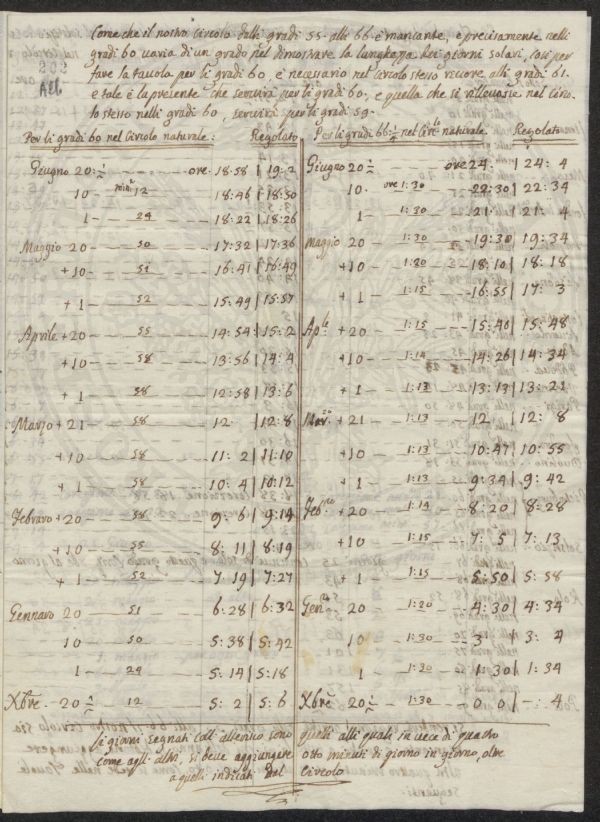 Come che il nostro Circolo dalli gradi 55. alli 66. è mancante, e precisamente nelli
gradi 60 varia di un grado nel dimostrare la lunghezza dei giorni solari, così per
fare la tavola per li gradi 60. è necessario nel Circolo stesso ricorre alli gradi 61.
e tale è la presente che servirà per li gradi 60., e quella che si rillevasse nel Circo-
lo stesso nelli gradi 60, servirà per li gradi 59.
Per li gradi 60 nel Circolo naturale: Regolato
Giugno 20 ore 18:58 | 19:2
10 min. 12 18:46 | 18:50
1 24 18:22 | 18:26
Maggio 20 50 17:32 | 17:36
+10 51 16:41 | 16:49
+1 52 15:49 | 15:57
Aprile +20 55 14:54 | 15:2
+10 58 13:56 | 14:4
+1 58 12:58 | 13:6
Marzo +21 58 12. | 12:8
+10 58 11:2 | 11:10
+1 58 10:4 | 10:12
Febraro +20 58 9:6 | 9:14
+10 55 8:11 | 8:19
+1 52 7:19 | 7:27
Gennaro 20 51 6:28 | 6:32
10 50 5:38 | 5:42
1 24 5:14 | 5:18
Xbre 20 12 5:2 | 5:6
Per li gradi 66:½ nel Circ.lo naturale. Regolato
Giugno 20 ore 24. | 24:4
10. ore 1:30 22:30 | 22:34
1 1:30 21. | 21:4
Maggio 20 1:30 19:30 | 19:34
+10 1:20 18:10 | 18:18
+1 1:15 16:55 | 17:3
Ap.le +20 1:15 15:40 | 15:48
+10 1:14 14:26 | 14:34
+1 1:13 13:13 | 13:21
Mar.zo +21 1:13 12 | 12:8
+10 1:13 10:47 | 10:55
+1 1:13 9:34 | 9:42
Feb.ro +20 1:14 8:20 | 8:28
+10 1:15 7:5 | 7:13
+1 1:15 5:50 | 5:58
Gen.ro 20 1:20 4:30 | 4:34
10 1:30 3 | 3:4
1 1:30 1:30 | 1:34
Xbre 20 1:30 0 0 | -:4
li giorni segnati coll'asterisco sono quelli alli quali in vece di quattro
come agli altri, si deve aggiungere otto minuti di giorno in giorno, oltre
a quelli indicati dal Circolo